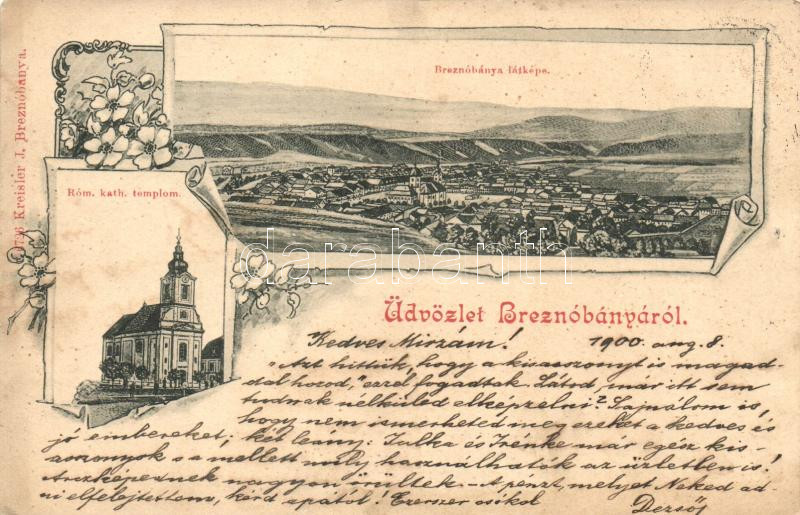 1736 Kreisler J. Breznóbánya.
Breznóbánya látképe.
Róm. kath. templom.
darabanth
Üdvözlet Breznóbányáról.
Kedves Mirzám! 1900 aug. 8.
"Azt hittük, hogy a kisasszonyt is magad-
dal hozod," ezzel fogadtak. Látod, már itt sem
tudnak nélküled elképzelni? Sajnálom is,
hogy nem ismerheted meg ezeket a kedves és
jó embereket; két leany: Julka és Irénke már egész kis-
asszonyok s a mellett mily használhatók az üzletben is!
Arczképednek nagyon örültek. - A pénzt, melyet Neked ad-
ni elfelejtettem, kérd apától! Ezerszer csókol
Dezsőd